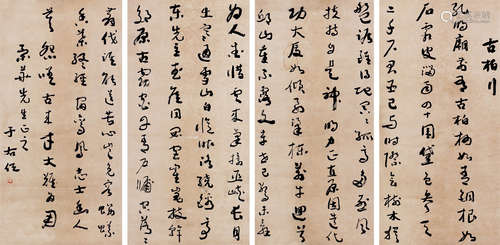 古柏行
孔明廟前有古柏柯如青銅根如
石霜皮溜雨四十圍黛色參天
二千尺君臣已與時際會樹木猶
盤踞雖得地冥冥孤高多烈風
扶持自是神明力正直原因造化
功大廈如傾要梁棟萬牛回首
邱山重不露文章世已驚未辭
為人愛惜雲來氣接巫峽長月
出寒通雪山白憶昨路繞錦亭
東先主武侯同閟宮崔嵬枝幹
郊原古窈窕丹青戶牖空落落
翦伐誰能送苦心豈免容螻蟻
香葉終經宿鸞鳳志士幽人
莫怨嗟古來材大難為用
先生正之
于右任